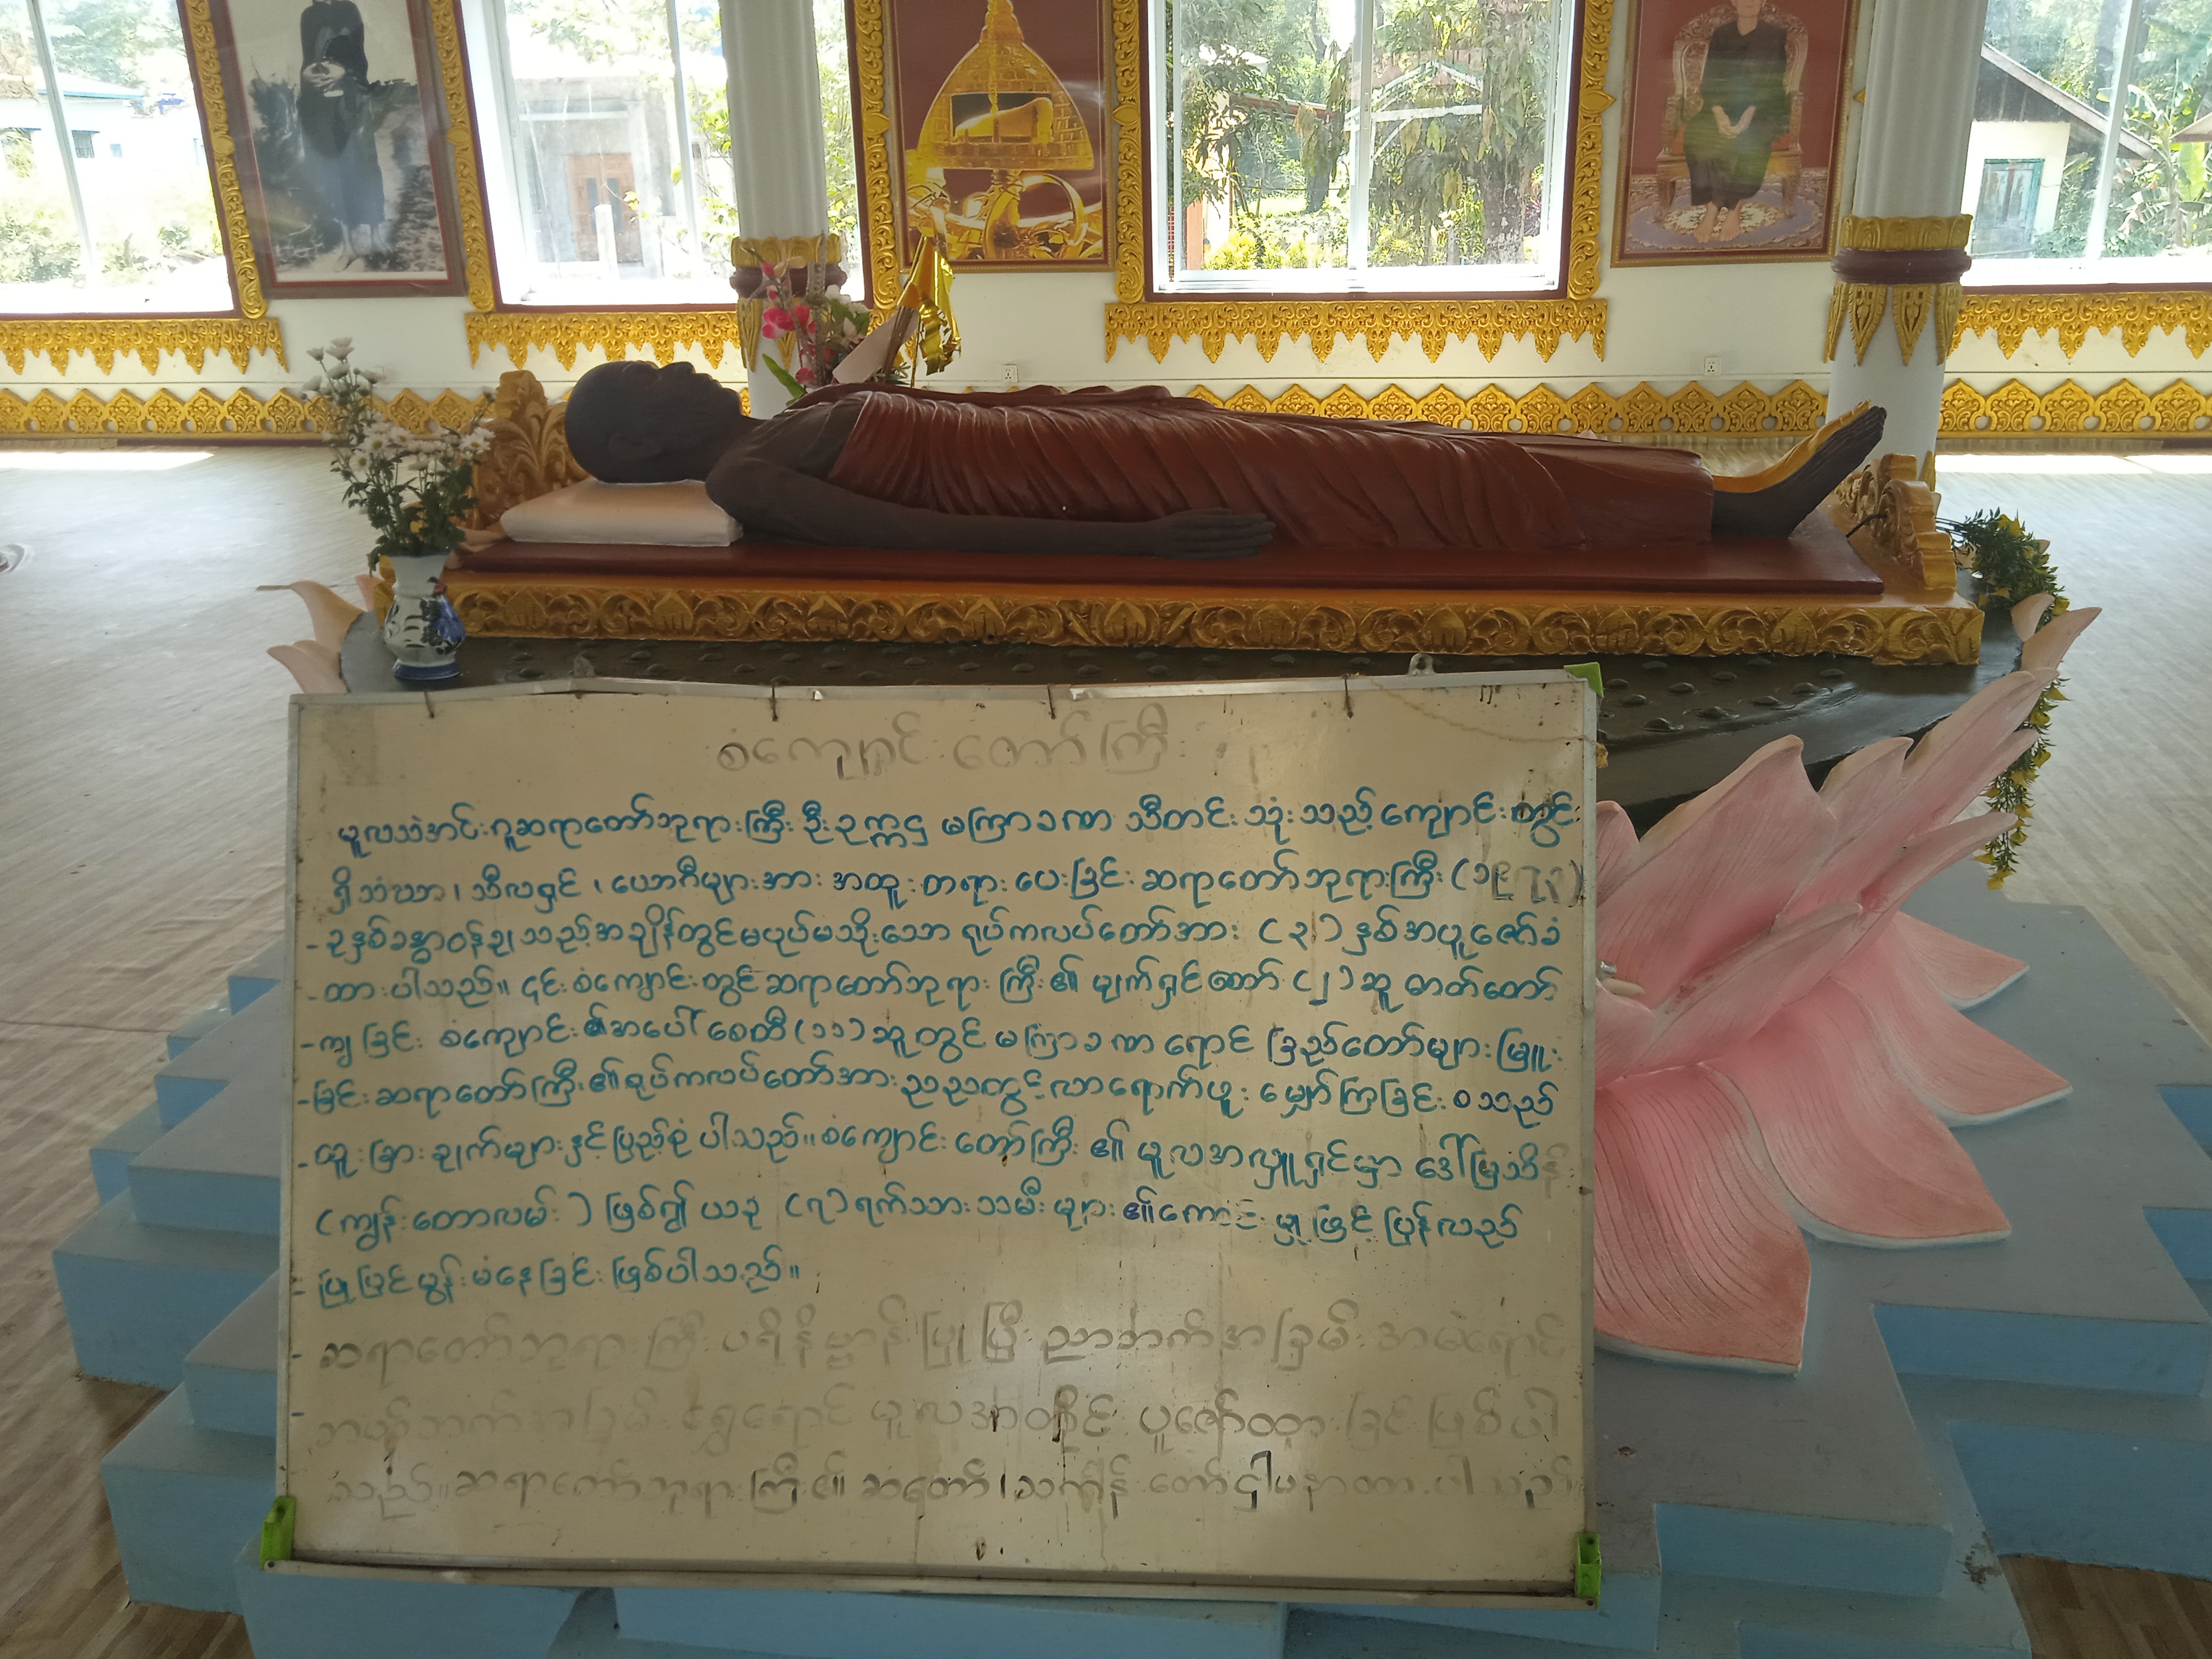 စံကျောင်းတော်ကြီး
မူလသံအင်းဂူဆရာတော်ဘုရားကြီး ဦးဥက္ကဋ္ဌ မကြာခဏ သီတင်းသုံးသည့်ကျောင်းတွင်း
ရှိသံဃာ၊ သီလရှင်၊ ယောဂီများအား အထူးတရားပေးခြင်း ဆရာတော်ဘုရားကြီး (၁၉
- ခုနှစ်ခန္ဓာဝန်ချသည့်အချိန်တွင်မပုပ်မသိုးသော ရုပ်ကလပ်တော်အား (၃) နှစ်အပူဇော်ခံ
- ထားပါသည်။ ၎င်းစံကျောင်းတွင်ဆရာတော်ဘုရားကြီး၏ မျက်ရှင်တော် (၂) ဆူ ဓာတ်တော်
- ကျခြင်း စံကျောင်း၏အပေါ် စေတီ (၁၁) ဆူတွင် မကြာခဏ ရောင်ခြည်တော်များ ဖြူး
- ခြင်းဆရာတော်ကြီး၏ရုပ်ကလပ်တော်အားညညတွင်လာရောက်ဖူးမျှော်ကြခြင်း စသည်
- ထူးခြားချက်များနှင့်ပြည့်စုံပါသည်။ စံကျောင်းတော်ကြီး၏ မူလအလှူရှင်မှာ ဒေါ်မြသိန်
(ကျွန်းတောလမ်း) ဖြစ်၍ ယခု (၇) ရက်သားသမီးများ၏ကောင်းမှုဖြင့် ပြန်လည်
- ပြုပြင်မွမ်းမံနေခြင်းဖြစ်ပါသည်။
- ဆရာတော်ဘုရားကြီး ပရိနိဗ္ဗာန်ပြုပြီး ညာဘက်အခြမ်း အမဲရောင်
- ဘယ်ဘက်အခြမ်း ရွှေရောင် မူလအတိုင်း ပူဇော်ထားခြင်းဖြစ်ပါ
သည်။ ဆရာတော်ဘုရားကြီး၏ ဆံတော်၊ သင်္ကန်းတော် ဌာပနာထားပါသည်